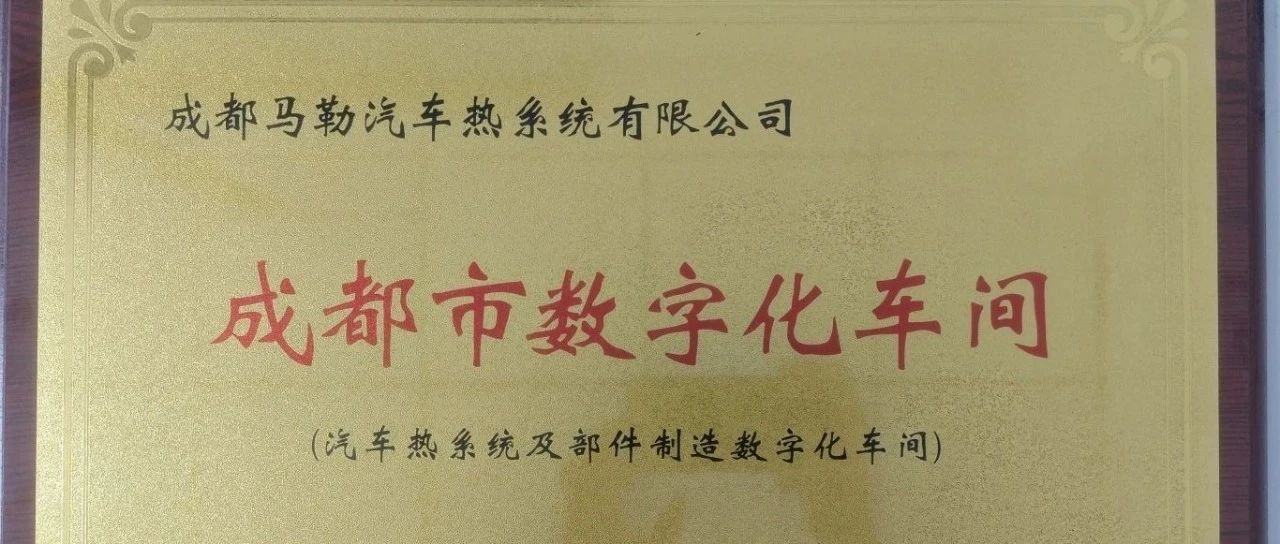 成都马勒汽车热系统有限公司
成都市数字化车间
(汽车热系统及部件制造数字化车间)